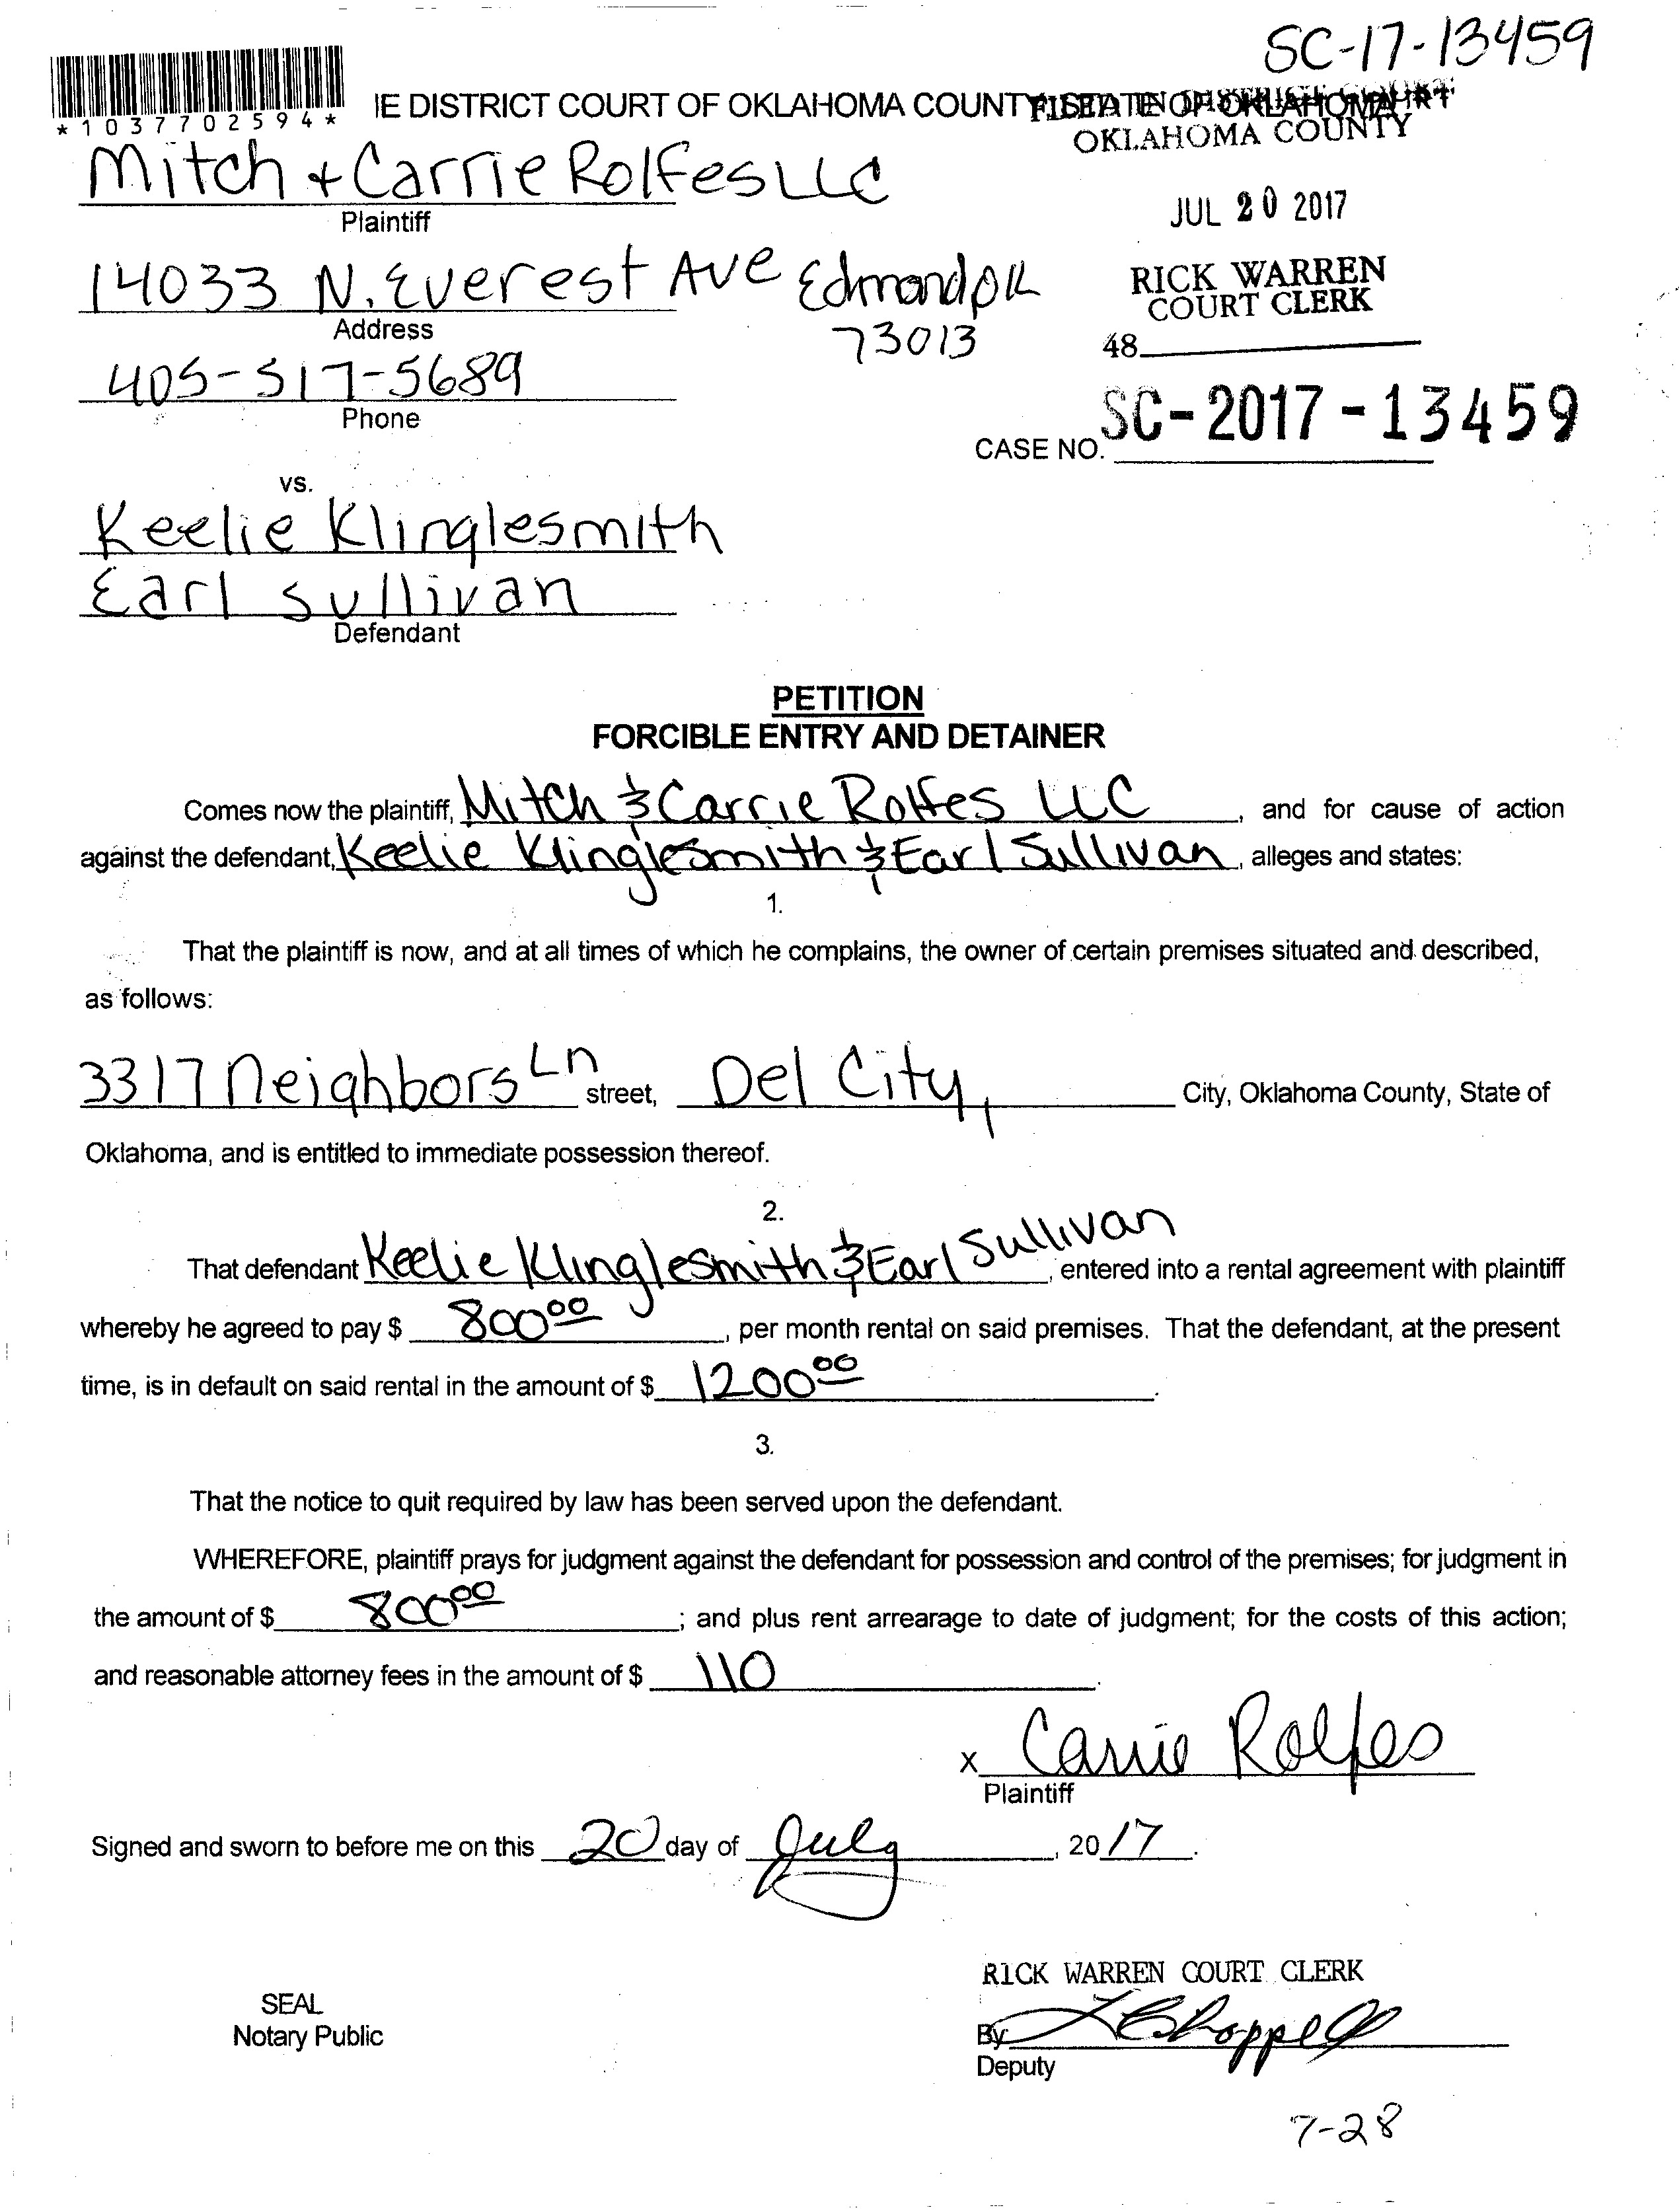 SC-17-13459
*1037702594*
IE DISTRICT COURT OF OKLAHOMA COUNTY STATE OF OKLAHOMA
FILED IN DISTRICT COURT
OKLAHOMA COUNTY
Mitch + Carrie Rolfes LLC
Plaintiff
JUL 20 2017
14033 N. Everest Ave Edmond OK
73013
Address
RICK WARREN
COURT CLERK
48
405-517-5689
Phone
CASE NO. SC-2017-13459
vs.
Keelie Klinglesmith
Earl Sullivan
Defendant
PETITION
FORCIBLE ENTRY AND DETAINER
Comes now the plaintiff, Mitch & Carrie Rolfes LLC, and for cause of action
against the defendant, Keelie Klinglesmith & Earl Sullivan, alleges and states:
1.
That the plaintiff is now, and at all times of which he complains, the owner of certain premises situated and described,
as follows:
3317 Neighbors Ln street, Del City, City, Oklahoma County, State of
Oklahoma, and is entitled to immediate possession thereof.
2.
That defendant Keelie Klinglesmith & Earl Sullivan, entered into a rental agreement with plaintiff
whereby he agreed to pay $ 800.00, per month rental on said premises. That the defendant, at the present
time, is in default on said rental in the amount of $ 1200.00.
3.
That the notice to quit required by law has been served upon the defendant.
WHEREFORE, plaintiff prays for judgment against the defendant for possession and control of the premises; for judgment in
the amount of $ 800.00; and plus rent arrearage to date of judgment; for the costs of this action;
and reasonable attorney fees in the amount of $ 110.
x Carrie Rolfes
Plaintiff
Signed and sworn to before me on this 20 day of July, 2017.
RICK WARREN COURT CLERK
SEAL
Notary Public
By L Chappell
Deputy
7-28